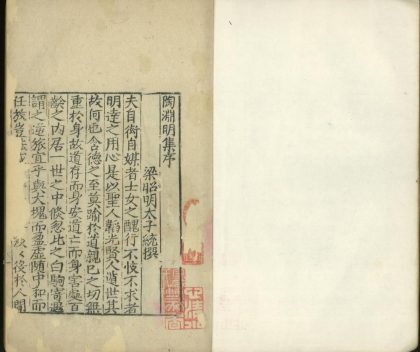 陶淵明集序
梁昭明太子統撰
夫自衒自媒者士女之醜行不忮不求者
明達之用心是以聖人韜光賢人遁世其
故何也含德之至莫踰於道親己之切無
重於身故道存而身安道亡而身害處百
齡之內居一世之中倏忽比之白駒寄遇
謂之逆旅宜乎與大塊而盈虛隨中和而
任放豈 於人間